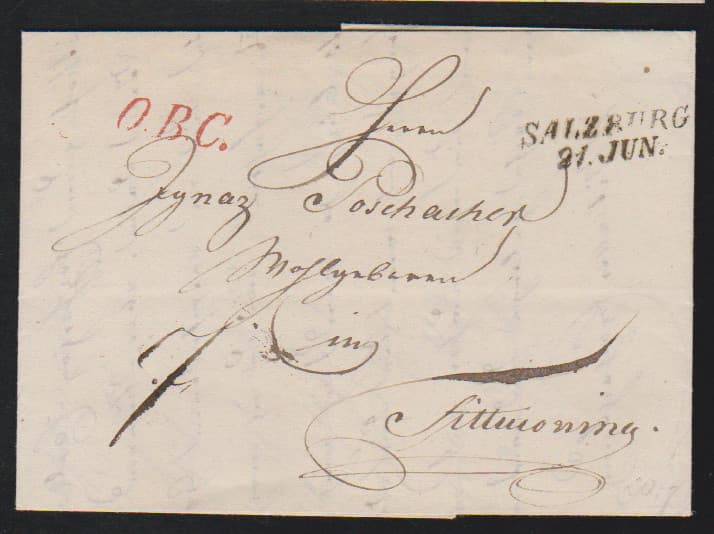 O.B.C.
SALZBURG
21. JUN.
Herrn
Ignaz Poschacher
Wohlgeboren
in
Tittmoning.